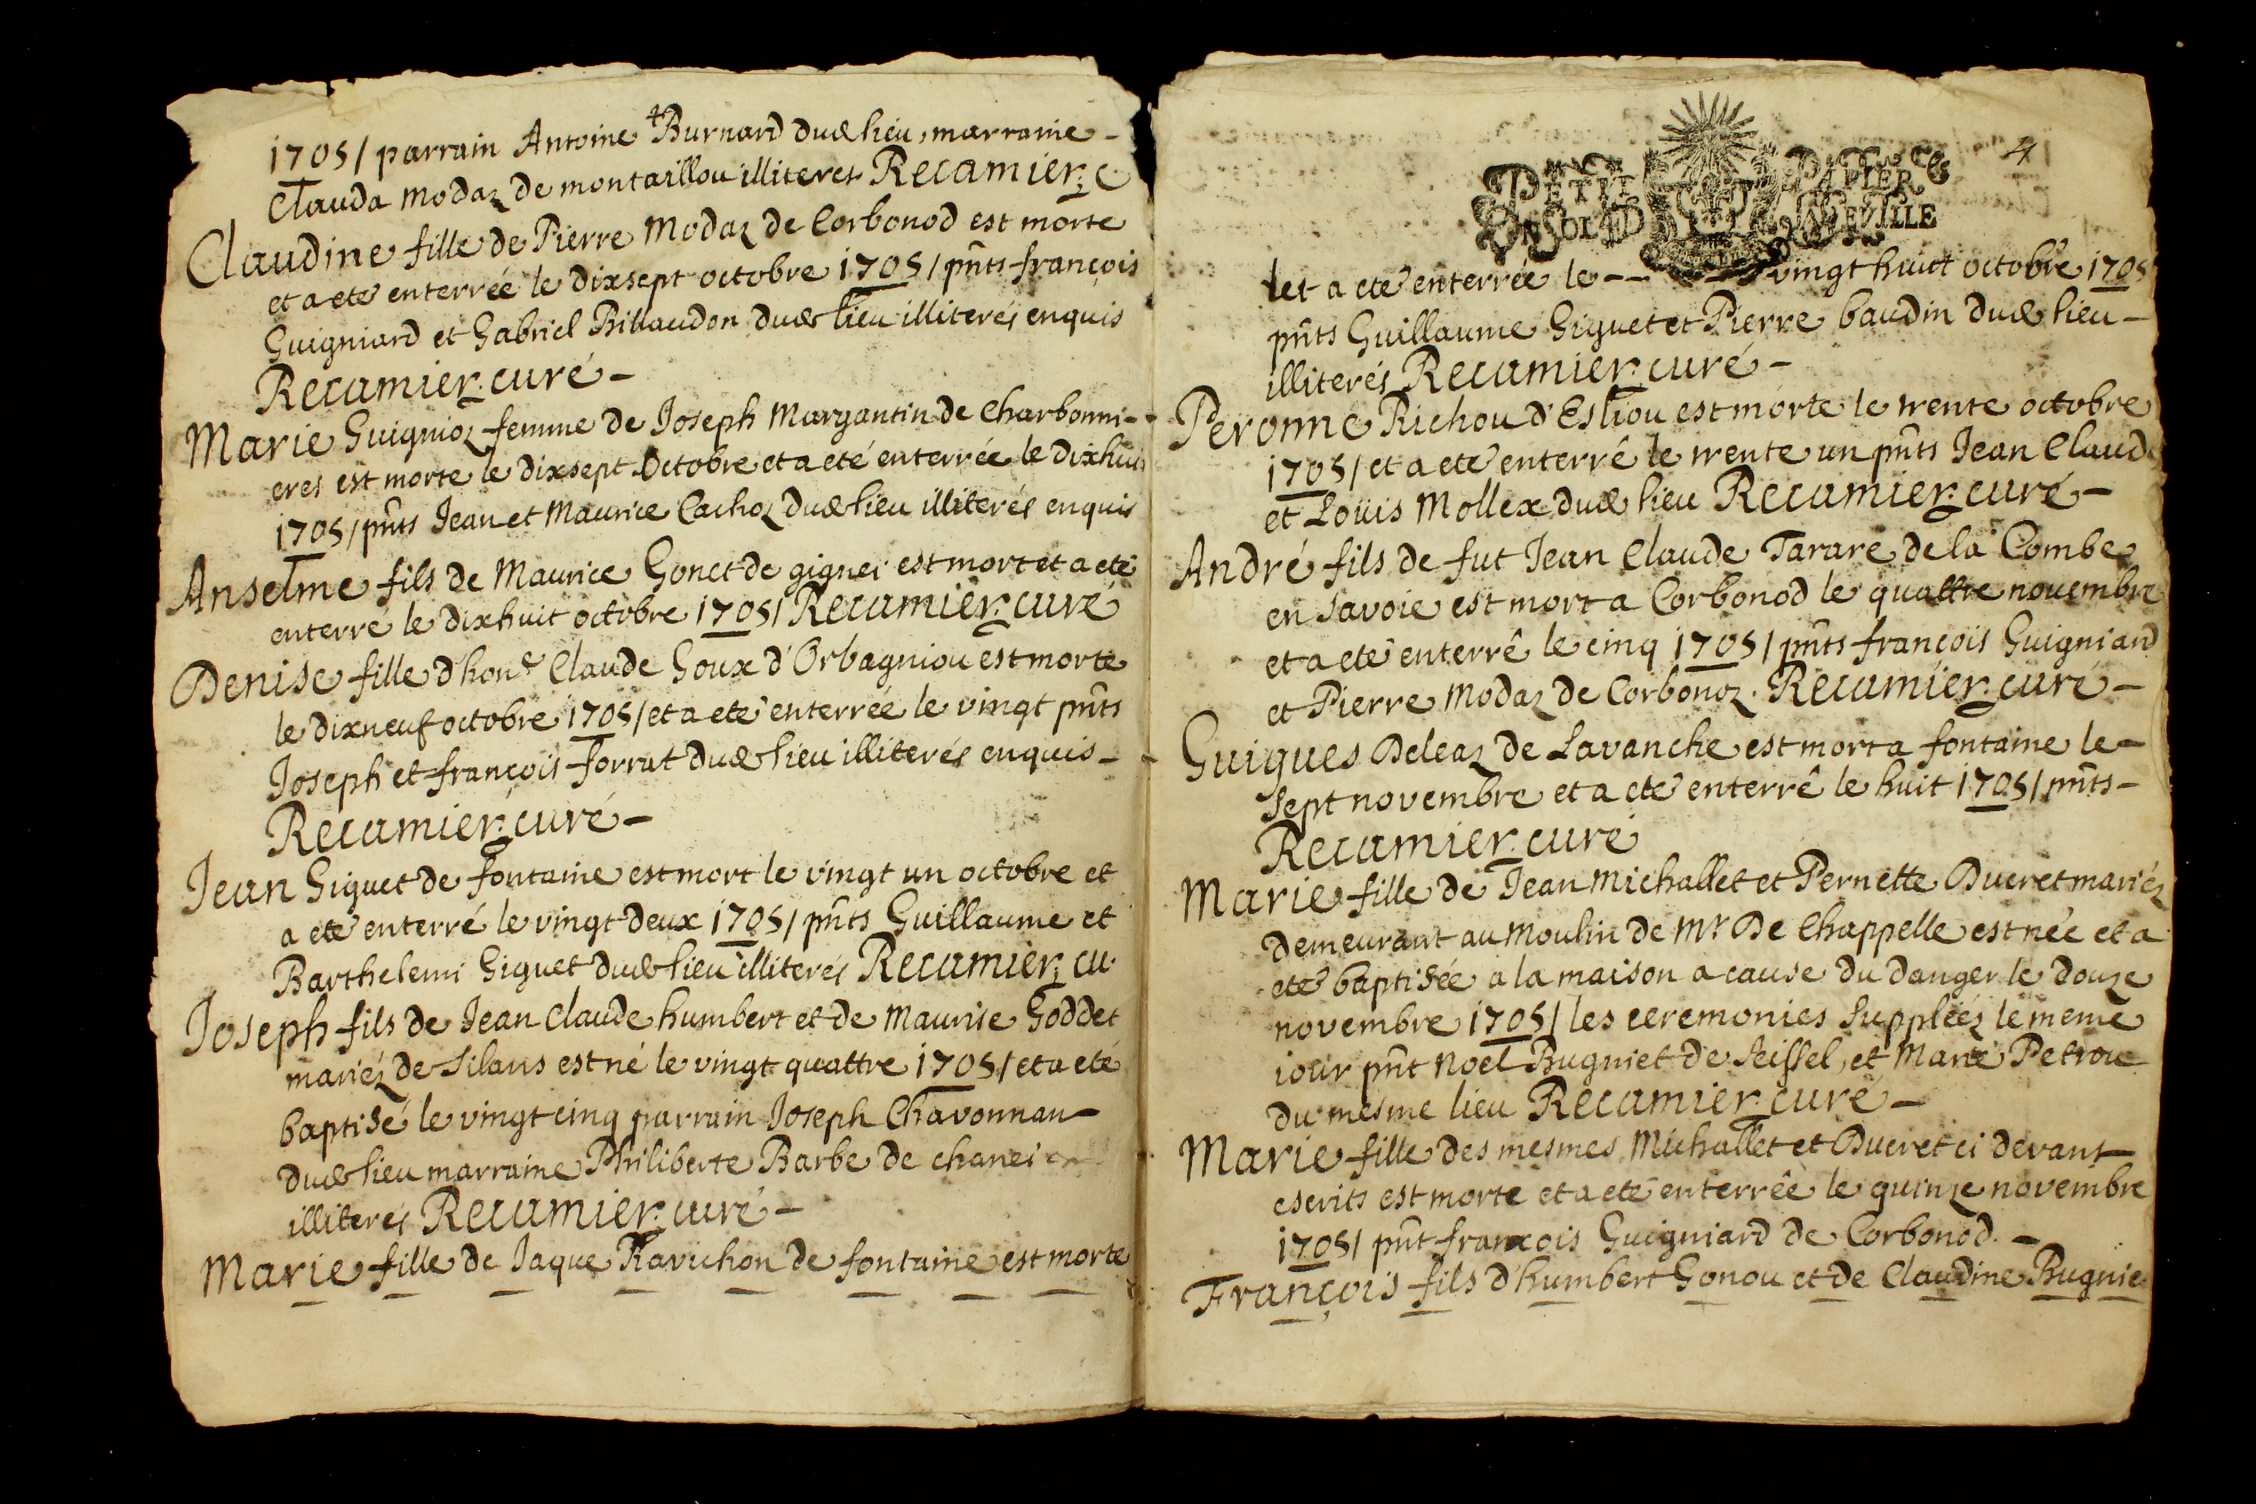 1705/ parrain Antoine Burnard dud lieu, marraine -
Clauda Modaz de montaillou illiteres Recamier: c
Claudine fille de Pierre Modaz de Corbonod est morte
et a eté enterrée le dixsept octobre 1705/ pnts françois
Guigniard et Gabriel Billaudon dud lieu illiterés enquis
Recamier: curé -
Marie Guignioz femme de Joseph Margantin de Charbonni-
eres est morte le dixsept Octobre et a eté enterrée le dixhui
1705/ pnts Jean et Maurice Cachoz dud lieu illiterés enquis
Anselme fils de Maurice Gonet de gignei est mort et a eté
enterré le dixhuit octobre 1705/ Recamier: curé
Denise fille d'hone Claude Goux d'Orbagniou est morte
le dixneuf octobre 1705/ et a eté enterrée le vingt pnts
Joseph et françois forrat dud lieu illiterés enquis -
Recamier: curé -
Jean Giguet de fontaine est mort le vingt un octobre et
a eté enterré le vingt deux 1705/ pnts Guillaume et
Barthelemi Giguet dud lieu illiterés Recamier: cu.
Joseph fils de Jean Claude humbert et de Maurise Goddet
mariéz de Silans est né le vingt quattre 1705/ et a eté
baptisé le vingt cinq parrain Joseph Chavonnan -
dud lieu marraine Philiberte Barbe de chanei
illiterés Recamier: curé -
Marie fille de Jaque Ravichon de fontaine est morte
4
PETIT PAPIER
UN SOL LA FEUILLE
et a eté enterrée le -- vingt huict octobre 1705
pnts Guillaume Giguet et Pierre baudin dud lieu -
illiterés Recamier: curé -
Peronne Richou d'Esliou est morte le trente octobre
1705/ et a eté enterré le trente un pnts Jean Claude
et Loüis Mollex dud lieu Recamier: curé -
André fils de fut Jean Claude Tarare de la Combe
en Savoie est mort a Corbonod le quattre novembre
et a eté enterré le cinq 1705/ pnts françois Guigniard
et Pierre Modaz de Corbonoz. Recamier: curé -
Guigues Deleaz de Lavanche est mort a fontaine le -
sept novembre et a eté enterré le huit 1705/ pnts -
Recamier: curé
Marie fille de Jean Michallet et Pernette Ducret mariéz
demeurant au Moulin de Mr De Chappelle est née et a
eté baptisée a la maison a cause du danger le douze
novembre 1705/ les ceremonies suppléez le meme
iour pnt Noël Bugniet de Seissel, et Marie Petrou
du mesme lieu Recamier: curé -
Marie fille des mesmes Michallet et Ducret ci devant
escrits est morte et a eté enterrée le quinze novembre
1705/ pnt françois Guigniard de Corbonod. -
François fils d'humbert Gonou et de Claudine Bugnie